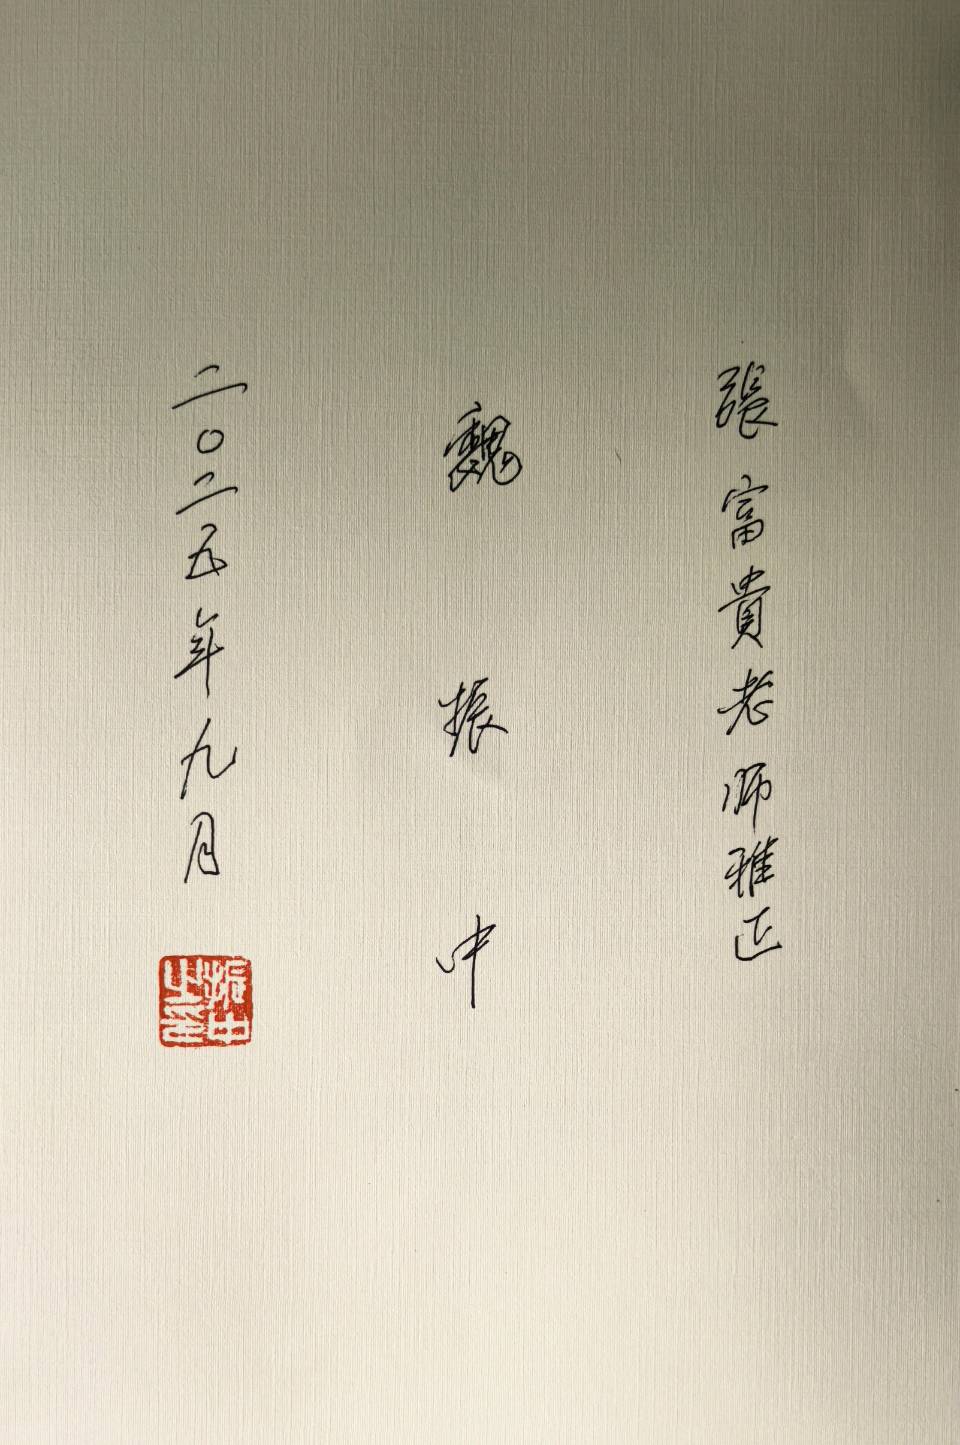 張富貴老师雅正
魏振中
二〇二五年九月
振中之印